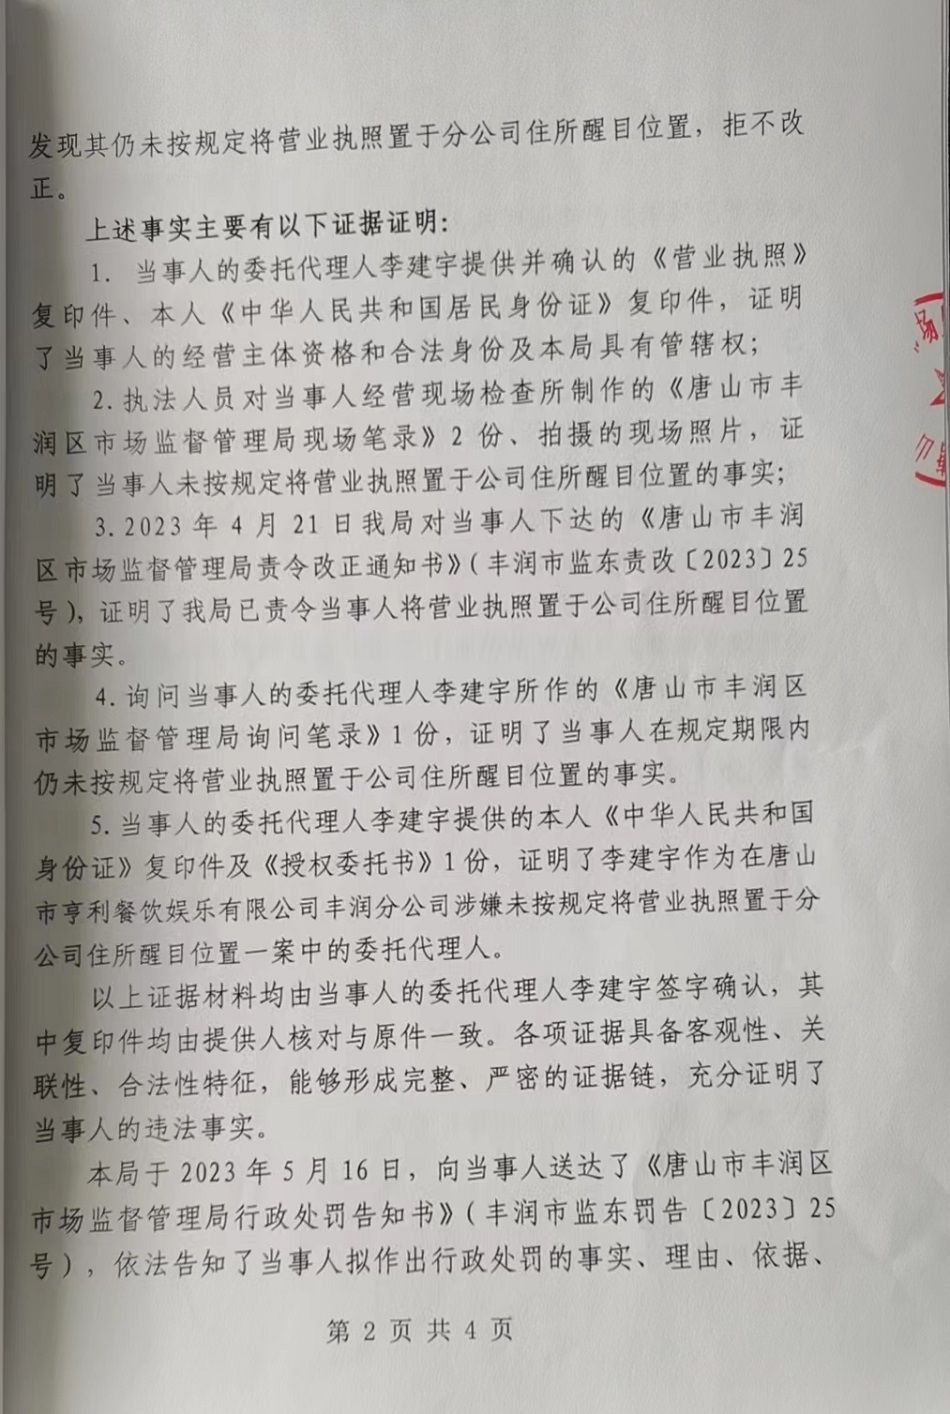 发现其仍未按规定将营业执照置于分公司住所醒目位置，拒不改
正。
上述事实主要有以下证据证明：
1. 当事人的委托代理人李建宇提供并确认的《营业执照》
复印件、本人《中华人民共和国居民身份证》复印件，证明
了当事人的经营主体资格和合法身份及本局具有管辖权；
2.执法人员对当事人经营现场检查所制作的《唐山市丰
润区市场监督管理局现场笔录》2 份、拍摄的现场照片，证
明了当事人未按规定将营业执照置于公司住所醒目位置的事实；
3.2023 年 4 月 21 日我局对当事人下达的《唐山市丰润
区市场监督管理局责令改正通知书》（丰润市监东责改〔2023〕25
号），证明了我局已责令当事人将营业执照置于公司住所醒目位置
的事实。
4.询问当事人的委托代理人李建宇所作的《唐山市丰润区
市场监督管理局询问笔录》1 份，证明了当事人在规定期限内
仍未按规定将营业执照置于公司住所醒目位置的事实。
5.当事人的委托代理人李建宇提供的本人《中华人民共和国
身份证》复印件及《授权委托书》1 份，证明了李建宇作为在唐山
市亨利餐饮娱乐有限公司丰润分公司涉嫌未按规定将营业执照置于分
公司住所醒目位置一案中的委托代理人。
以上证据材料均由当事人的委托代理人李建宇签字确认，其
中复印件均由提供人核对与原件一致。各项证据具备客观性、关
联性、合法性特征，能够形成完整、严密的证据链，充分证明了
当事人的违法事实。
本局于 2023 年 5 月 16 日，向当事人送达了《唐山市丰润区
市场监督管理局行政处罚告知书》（丰润市监东罚告〔2023〕25
号），依法告知了当事人拟作出行政处罚的事实、理由、依据、
第 2 页 共 4 页